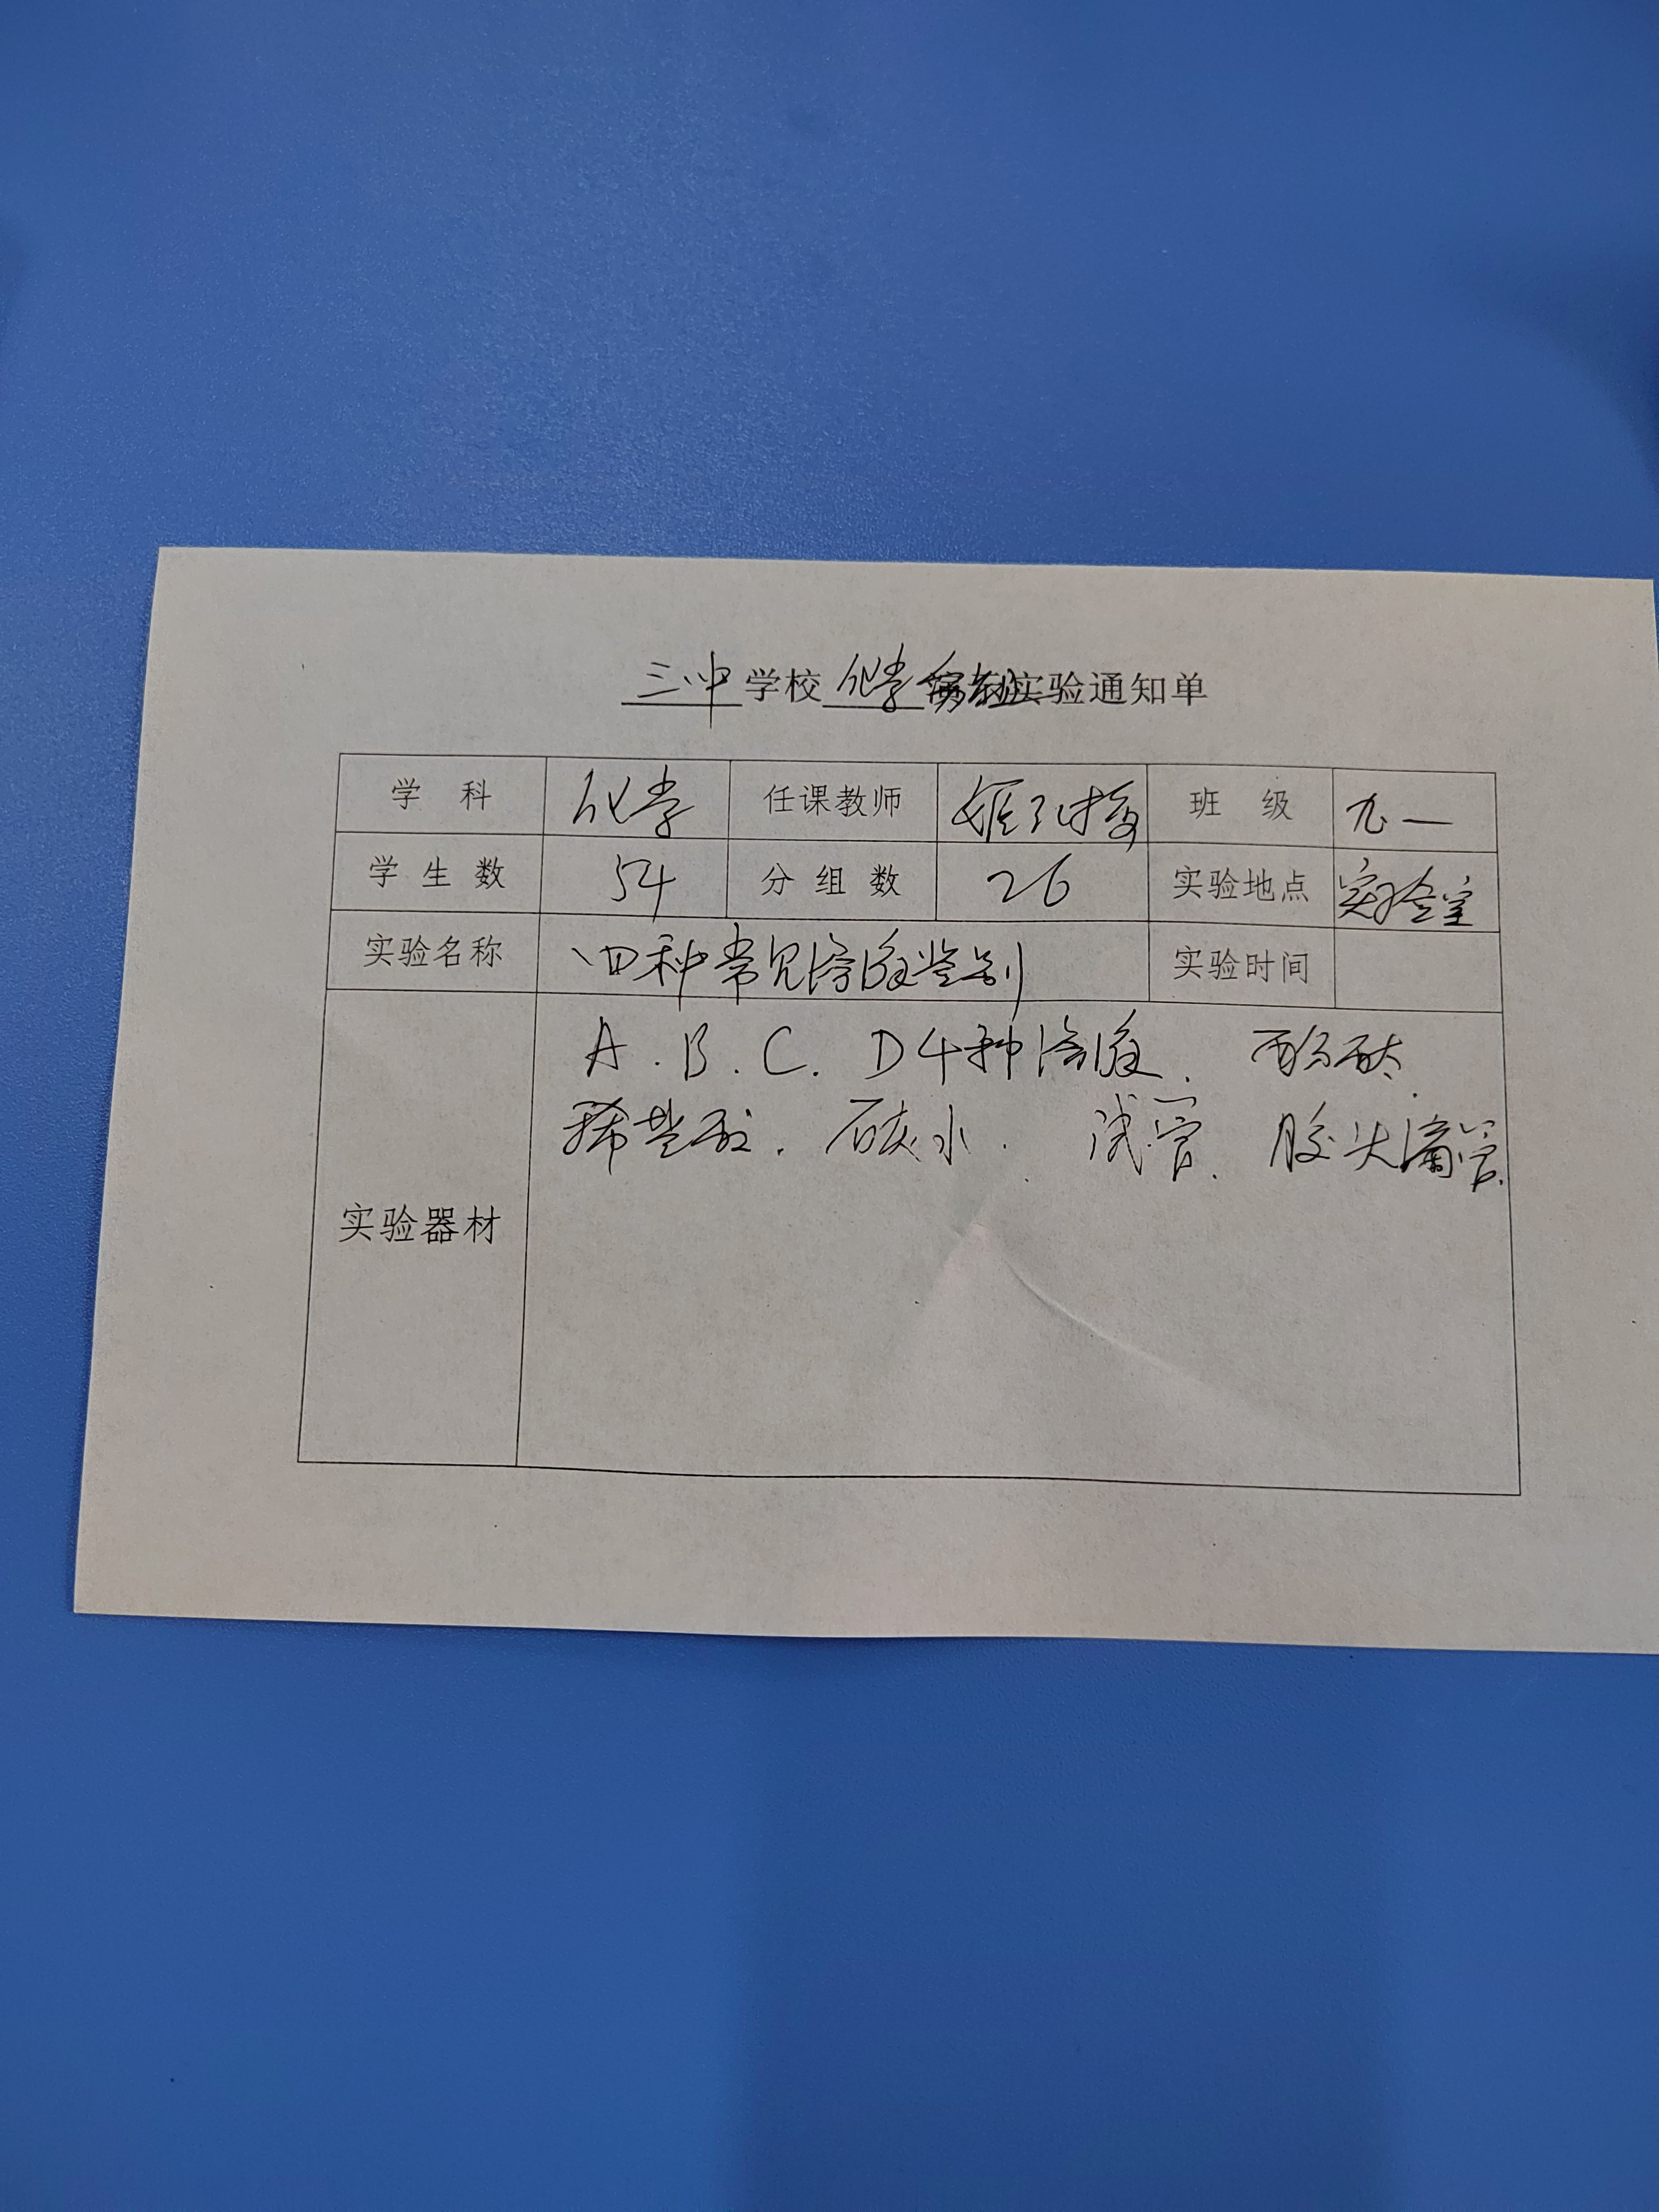 三中学校化学实验通知单
学科 化学 任课教师 班级 九一
学生数 54 分组数 26 实验地点 实验室
实验名称 四种常见溶液鉴别 实验时间
A.B.C.D4种溶液. 酚酞.
稀盐酸. 石灰水. 试管. 胶头滴管.
实验器材